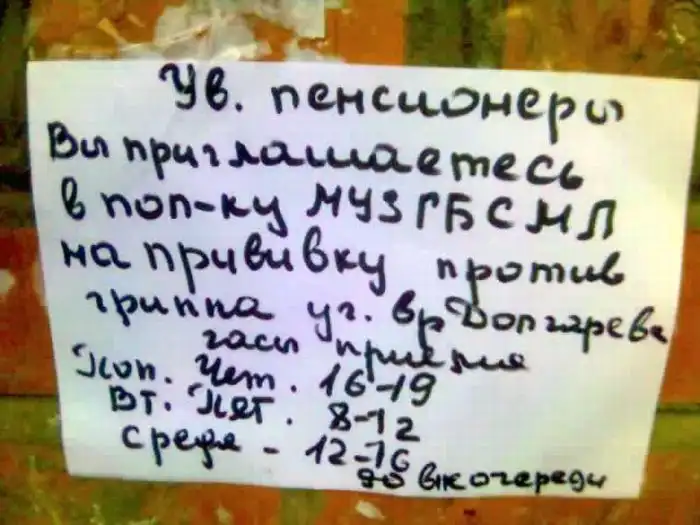 Ув. пенсионеры
Вы приглашаетесь
в поп-ку МУЗ ГБСМП
на прививку против
гриппа уч. вр Долгарева
часы приема
Пон. Чет. 16-19
Вт. Пят. 8-12
среда - 12-16
вне очереди